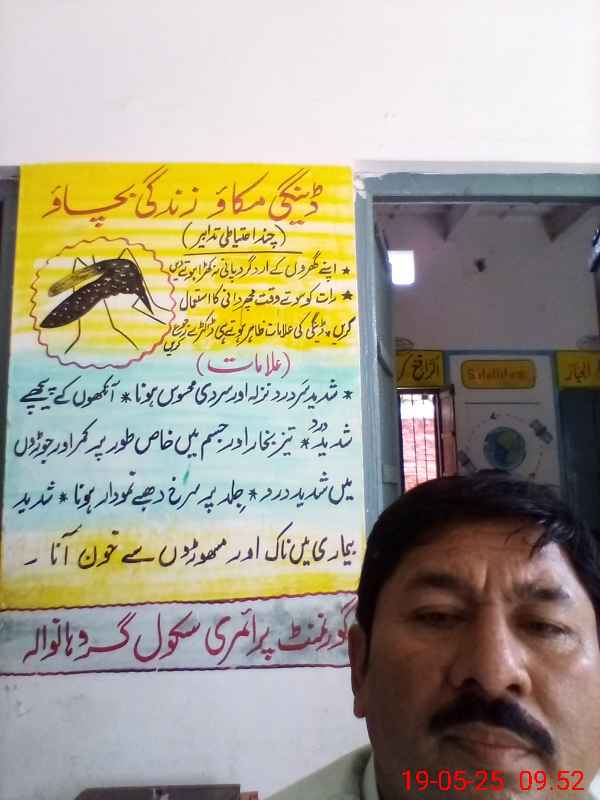 ڈینگی مکاؤ زندگی بچاؤ
(چند احتیاطی تدابیر)
* اپنے گھروں کے اردگرد پانی نہ کھڑا ہونے دیں
* رات کو سوتے وقت مچھر دانی کا استعمال
کریں * ڈینگی کی علامات ظاہر ہوتے ہی ڈاکٹر سے رجوع کریں
(علامات)
* شدید سَر درد نزلہ اور سردی محسوس ہونا * آنکھوں کے پیچھے
شدید درد * تیز بخار اور جسم میں خاص طور پر کمر اور جوڑوں
میں شدید درد * جِلد پر سرخ دھبے نمودار ہونا * شدید
بیماری میں ناک اور مسوڑوں سے خون آنا -
گورنمنٹ پرائمری سکول گروہانوالہ
Satellite
19-05-25 09.52